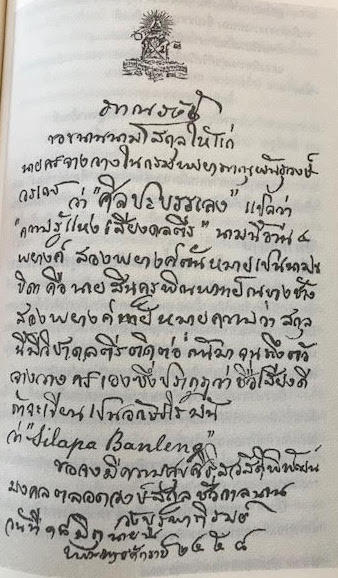 ขอขนานนามสกุลให้แก่
นายศร จางวางในกรม
วรเดช ว่า "ศิลปะบรรเลง" แปลว่า
"ความรู้แห่งเสียงดนตรี" นามนี้อ่าน ๔
พยางค์ สองพยางค์ต้นหมายเป็นนาม
บิดา คือ นายสินครูพิณพาทย์ ณบางช้าง
สองพยางค์ท้าย หมายความว่า สกุล
นี้มีวิชาดนตรีติดต่อกันมา จนถึงตัว
จางวางศรเองซึ่งปรากฏว่าชื่อเสียงดี
ถ้าจะเขียนเป็นอักษรโรมัน
ว่า "Silapa Banleng"
ขอจงมีความสุข สวัสดิ์พิพัฒน์
มงคลตลอดวงษ์สกุล ชั่วกาลนาน
วันที่ ๑๘ มิถุนายน
พระพุทธศักราช ๒๔๕๘